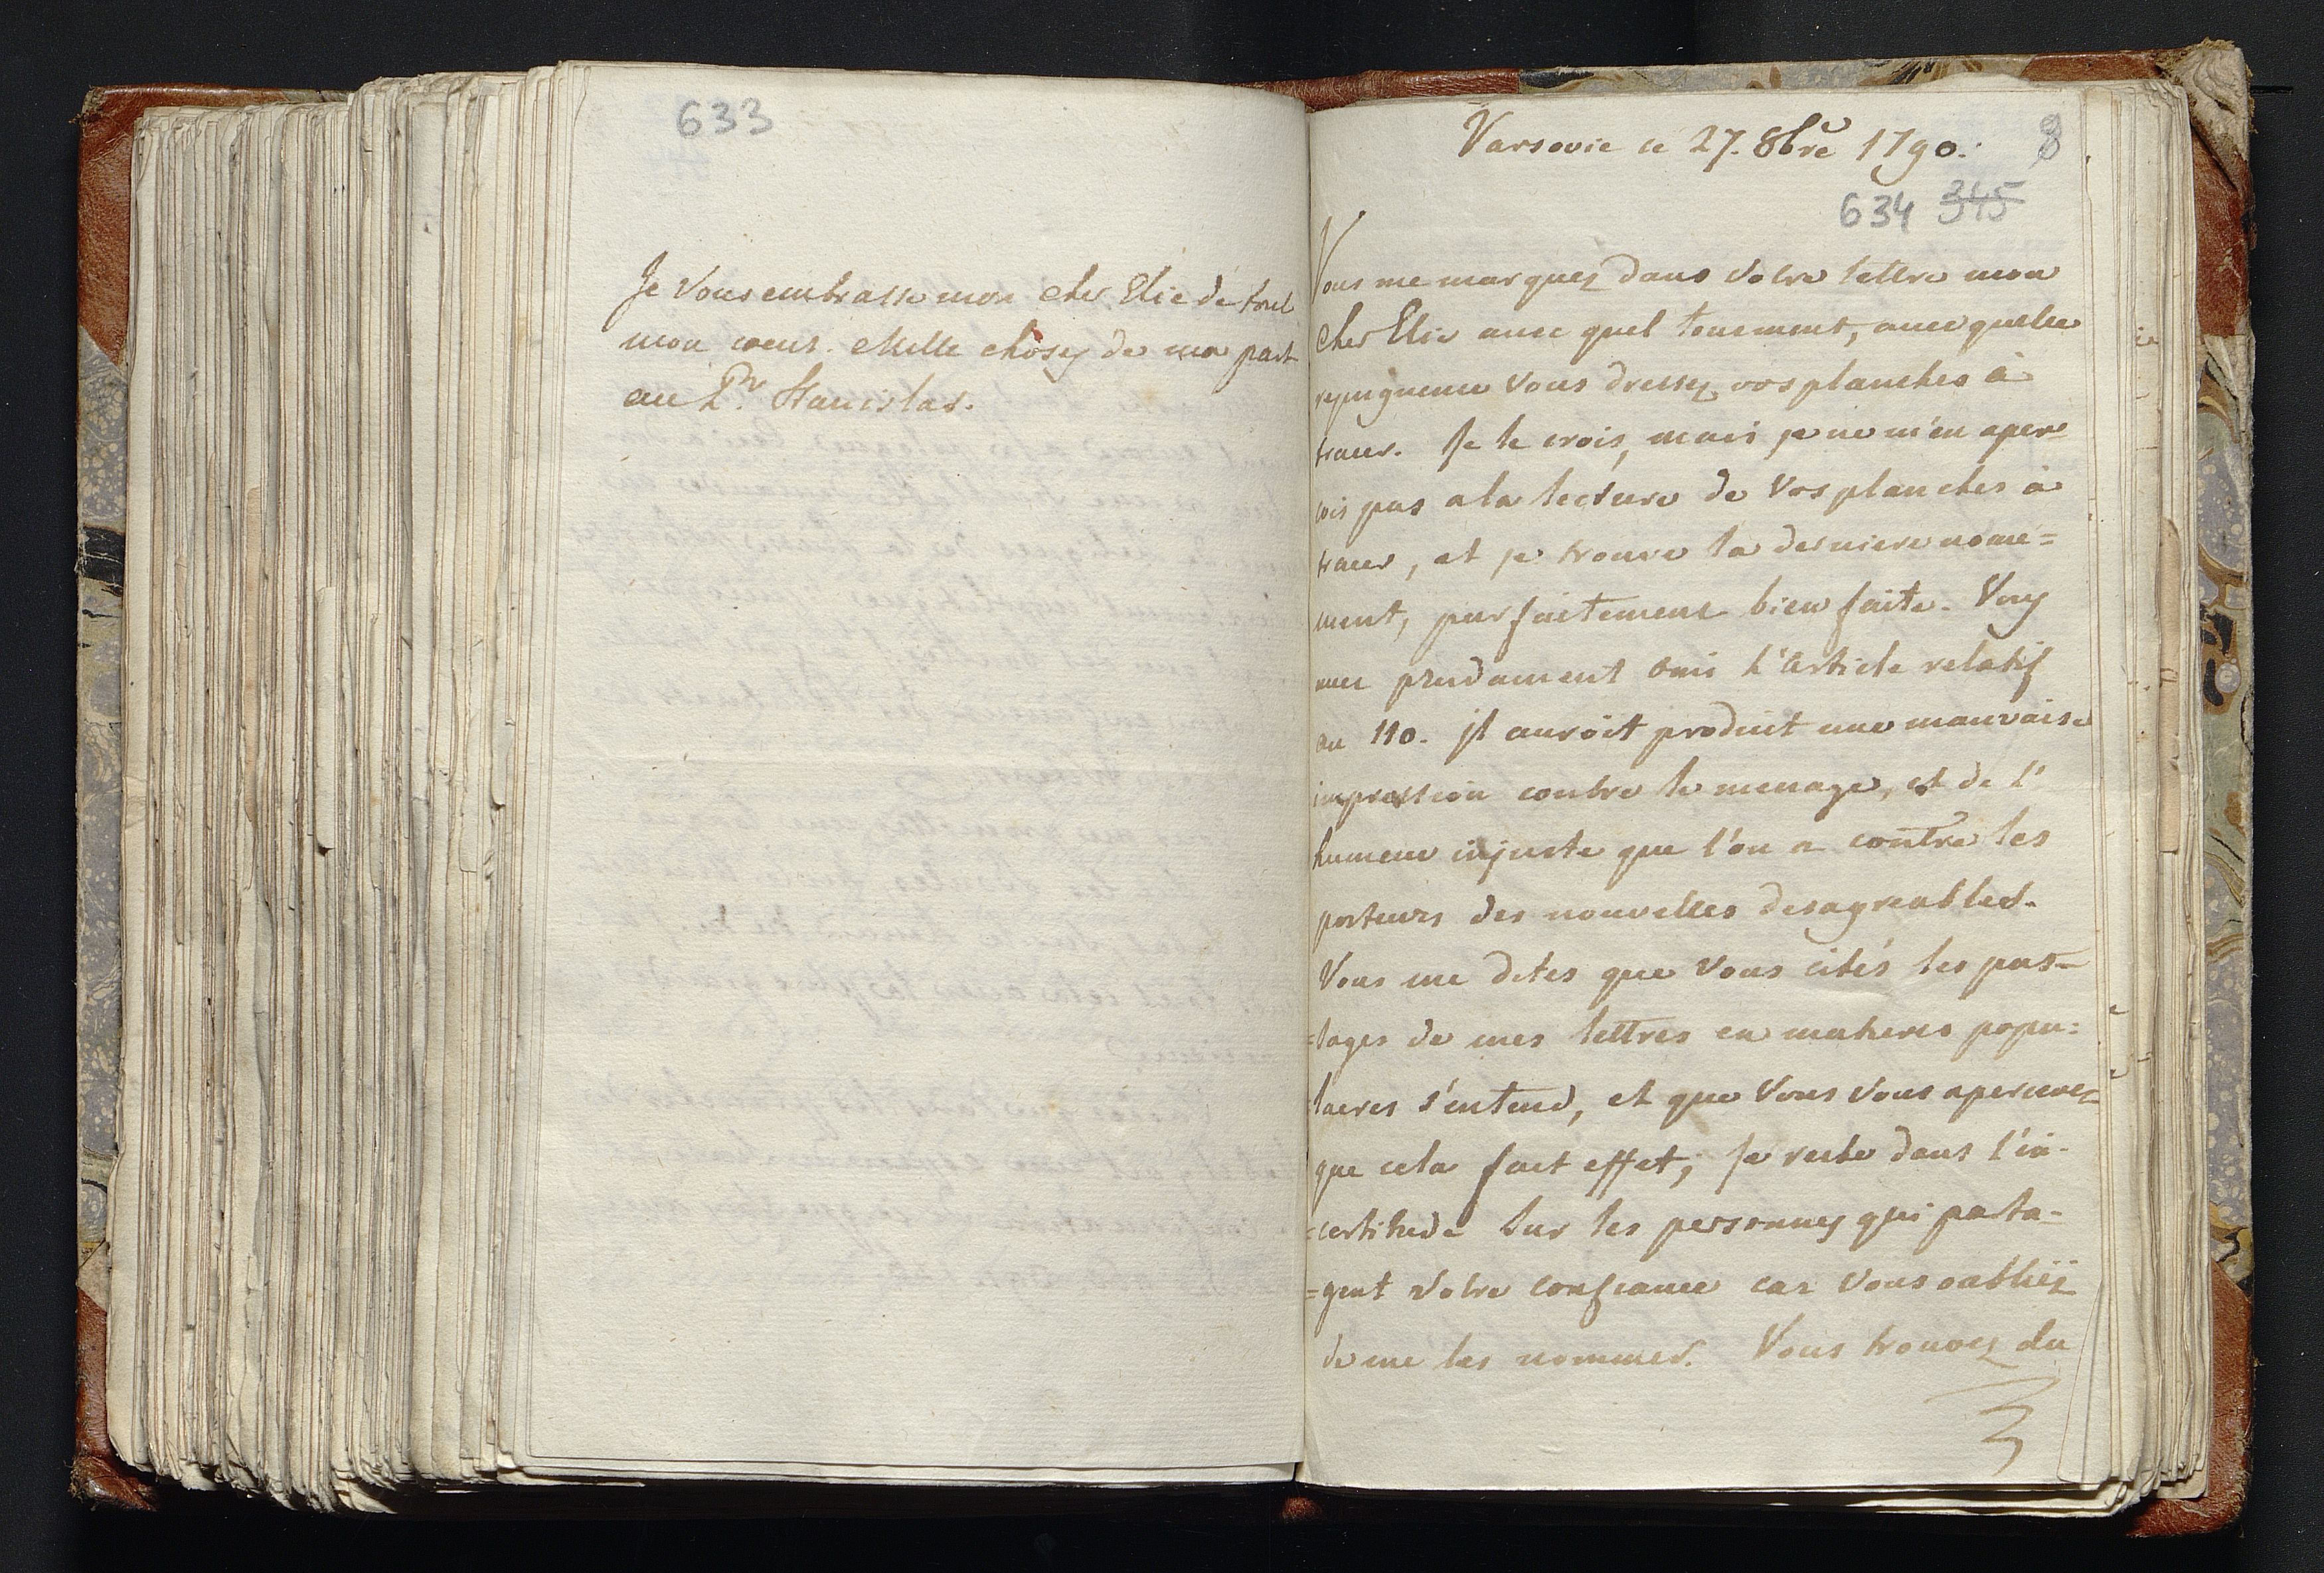 633
Je Vous embrasse mon cher Elie de tout
mon coeur. Mille choses de ma part
au Pr. Stanislas.
Varsovie ce 27. 8bre 1790.
8
634 345
Vous me marquez dans votre lettre mon
cher Elie avec quel tourment, avec quelle
repugnence Vous dressez vos planches à
tracer. Je le crois, mais je ne m'en aper
cois pas a la lecture de Vos planches à
tracer, et je trouve la derniere nome=
ment, parfaitement bien faite. Vous
avez prudament omis l'Article relatif
au 110. il auroit produit une mauvaise
impression contre le menage, et de l'
humeur injuste que l'on a contre les
porteurs des nouvelles desagreables.
Vous me dites que Vous cités les pas=
=sages de mes lettres en matieres popu=
laires s'entend, et que Vous Vous apercevez
que cela fait effet; Je reste dans l'in-
=certitude sur les personnes qui parta-
=gent votre confiance car Vous oubliéz
de me les nommer. Vous trouvez du